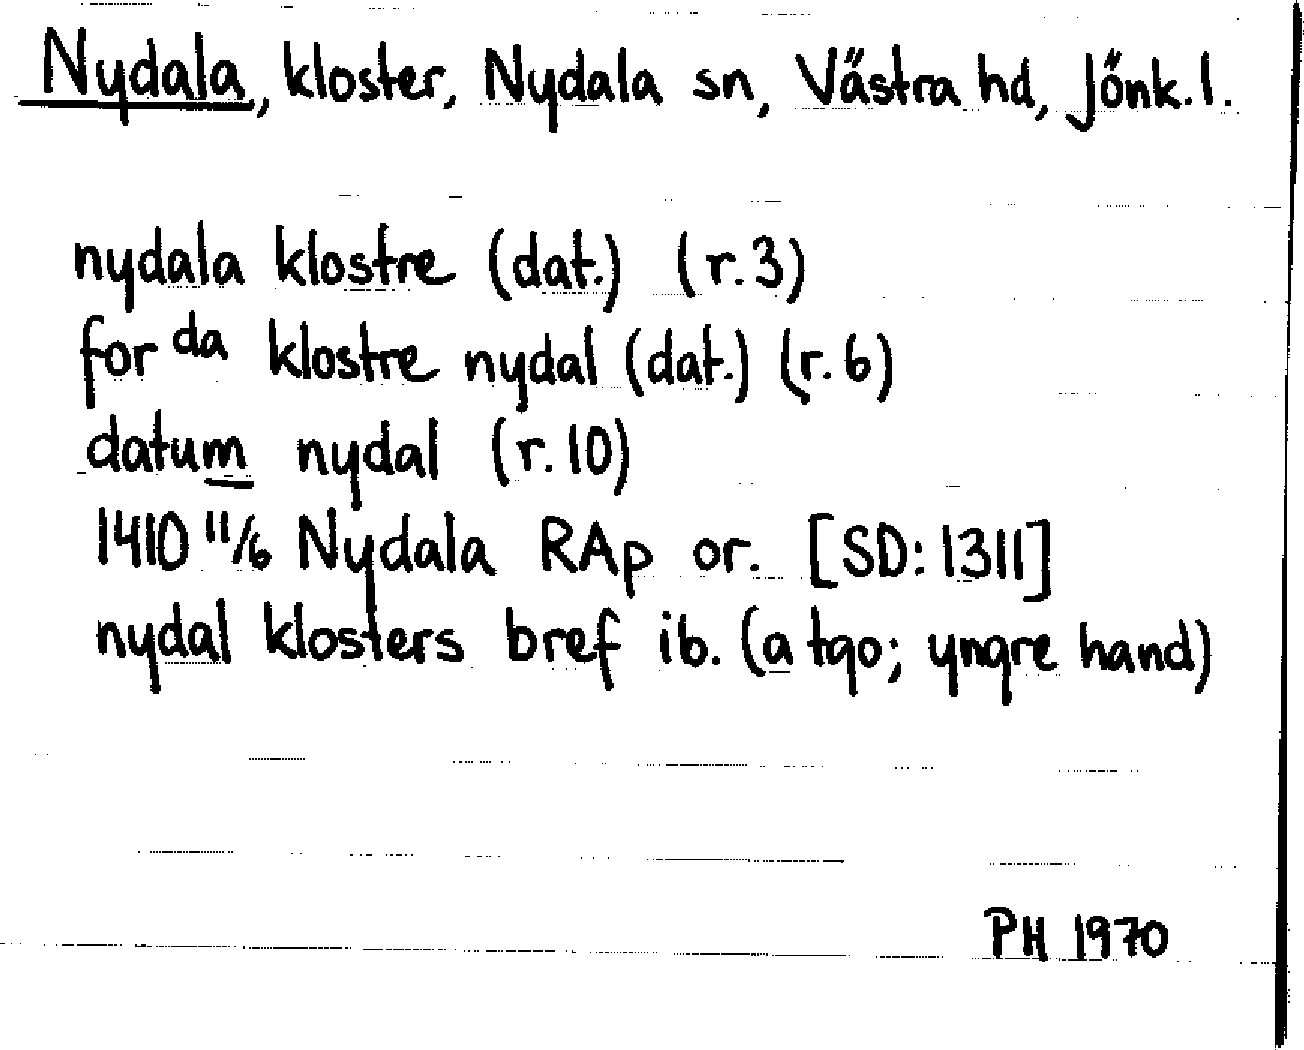 Nydala, kloster, Nydala sn, Västra hd, Jönk. l.
nydala klostre (dat.) (r. 3)
for da klostre nydal (dat.) (r. 6)
datum nydal (r. 10)
1410 11/6 Nydala RAp or. [SD: 1311]
nydal klosters bref ib. (a tgo; yngre hand)
PH 1970